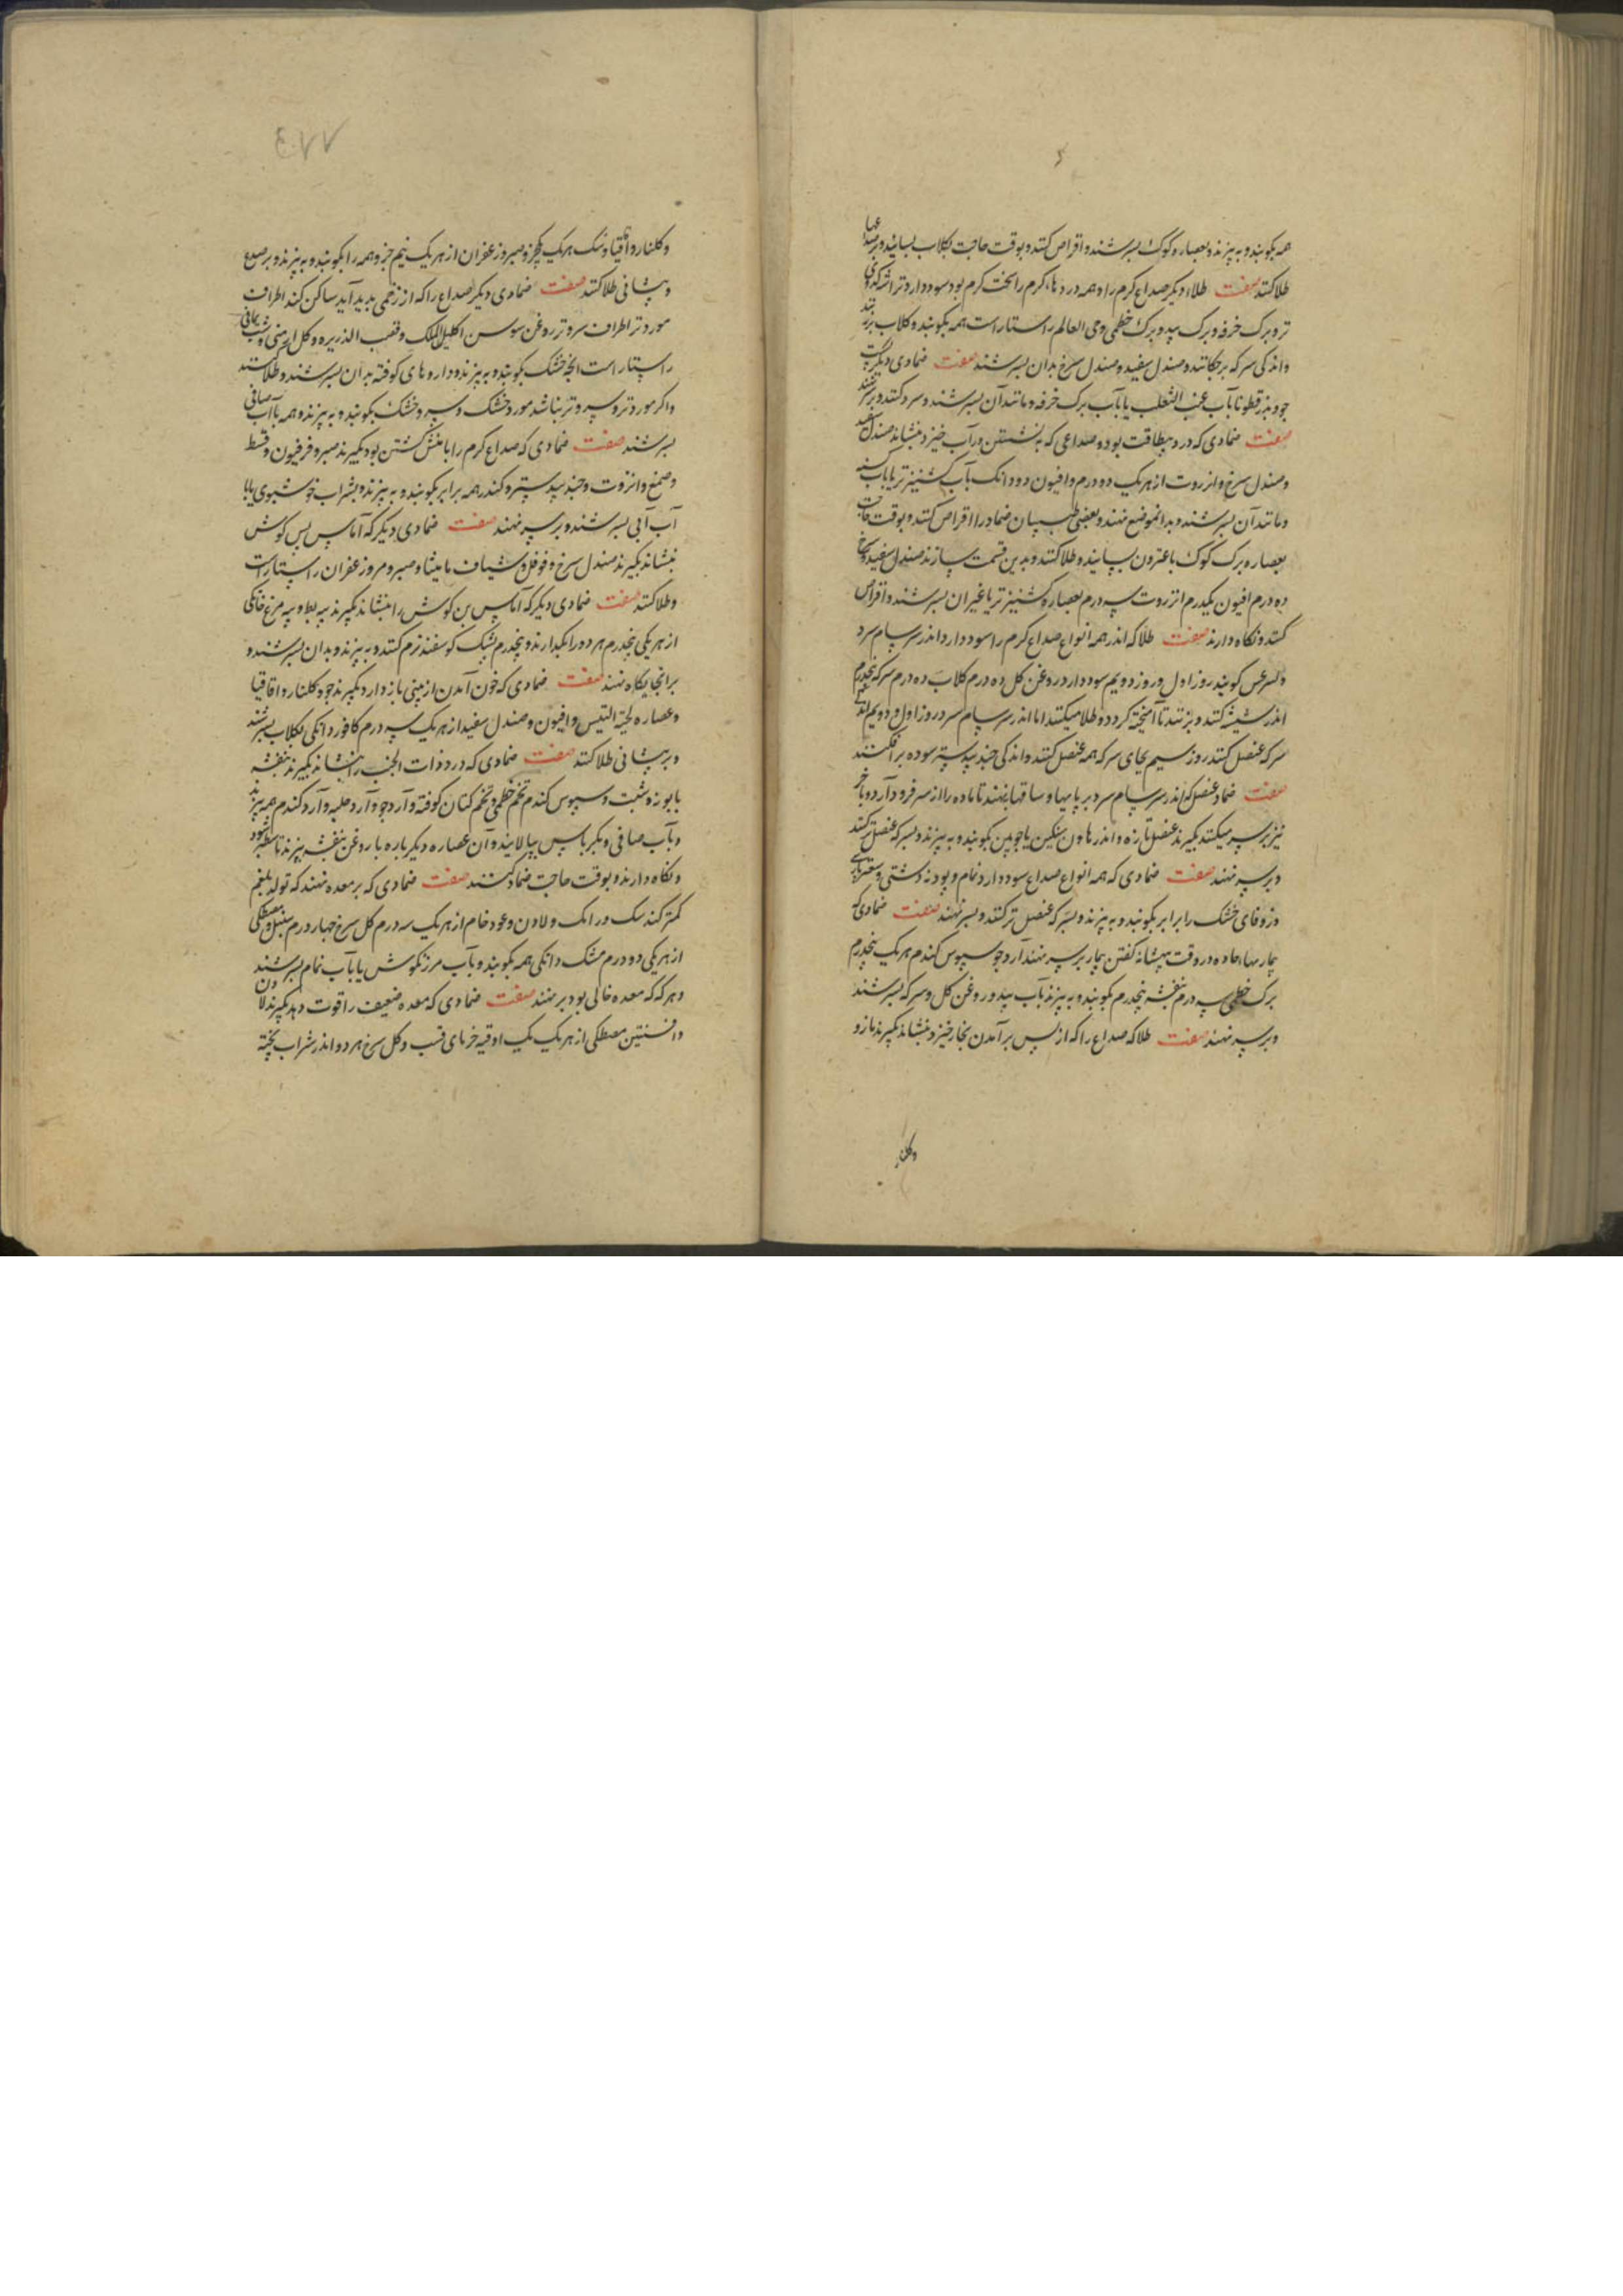 همه بکوبند و به پزند و بعصاره کوک بسرشند و اقراص کنند و بوقت حاجت بکلاب بسایند و بر
طلا کنند صفت طلاء دیکر صداع کرم را و همه دردهاء کرم را سخت کرم بود سود دارد تراشه کدوی
تر و برک خرفه و برک بید و برک خطمی و حی العالم راستاراست همه بکوبند و کلاب
و اندکی سرکه برچکانند و صندل سفید و صندل سرخ بدان بسرشند صفت ضمادی دیکر
جو و بزرقطونا بآب عنب الثعلب یا بآب برک خرفه و مانند آن بسرشند و سرد کنند و بر سر نهند
صفت ضمادی که درد بیطاقت بود و صداعی که به نشستن در آب خیزد بنشاند صندل سفید
و صندل سرخ و انزروت از هر یک دو درم و افیون دو دانک بآب کشنیز تر یا بآب
و مانند آن بسرشند و بدانموضع نهند و بعضی طبیبان ضماد را اقراص کنند و بوقت حاجت
بعصاره برک کوک یا غیر آن بسایند و طلا کنند و بدین قسمت سازند صندل سفید و سرخ
ده درم افیون یکدرم انزروت سه درم بعصاره کشنیز تر یا غیر آن بسرشند و اقراص
کنند و نکاه دارند صفت طلا که اندر همه انواع صداع کرم را سود دارد اندر سرسام سرد
و لسرغس کویند روز اول و روز دویم سود دارد روغن کل ده درم کلاب ده درم سرکه پنجدرم
اندر شیشه کنند و بزنند تا آمیخته کردد و طلا میکنند اما اندر سرسام سرد روز اول و دویم
سرکه عنصل کنند روز سیم بجای سرکه همه عنصل کنند و اندکی جندبیدستر سوده برافکنند
صفت ضماد عنصل که اندر سرسام سرد بر پایها و ساقها نهند تا ماده را از سر فرود آرد و باخر
نیز بر سر میکنند بکیرند عنصل تازه و اندر هاون سنکین یا چوبین بکوبند و به پزند و بسرکه عنصل تر کنند
و بر سر نهند صفت ضمادی که همه انواع صداع سود دارد نمام و پودنه دشتی و سعتر
و زوفای خشک را برابر بکوبند و به پزند و بسرکه عنصل تر کنند و بسر نهند صفت ضمادی که
بیماریهاء حاده در وقت بیشانه کفتن بیمار بر سر نهند آرد جو سبوس کندم هر یک پنجدرم
برک خطمی سه درم بنفشه پنجدرم بکوبند و به پزند بآب بید و روغن کل و سرکه بسرشند
و بر سر نهند صفت طلا که صداع را که از پس برآمدن بخار خیزد بنشاند بکیرند مازو
وکلنار
و کلنار و اقاقیا و شک هر یک یکجزو صبر و زعفران از هر یک نیم جزو همه را بکوبند و به پزند و بر صدغ
و پیشانی طلا کنند صفت ضمادی دیکر صداع را که از زخمی پدید آید ساکن کند اطراف
مورد تر اطراف سرو تر روغن سوسن اکلیل الملک و قصب الذریره و کل ارمنی و شب یمانی
راستاراست انچه خشک بکوبند و به پزند و داروهای کوفته بدان بسرشند و طلا کنند
و اکر مورد تر و سرو تر نباشد مورد خشک و سرو خشک بکوبند و به پزند و همه بآب صافی
بسرشند صفت ضمادی که صداع کرم را با منش کشتن بود بکیرند صبر و فرفیون و قسط
و صمغ و انزروت و جندبیدستر و کندر همه برابر بکوبند و به پزند و بشراب خوشبوی یا با
آب آبی بسرشند و بر سر نهند صفت ضمادی دیکر که آماس پس کوش
بنشاند بکیرند صندل سرخ و فوفل و شیاف مامیثا و صبر و مر و زعفران راستاراست
و طلا کنند صفت ضمادی دیکر که آماس بن کوش را بنشاند بکیرند پیه بط و پیه مرغ خانکی
از هر یکی پنجدرم هر دو را بکدازند و پنجدرم پشک کوسفند نرم کنند و به پزند و بدان بسرشند و
برانجایکاه نهند صفت ضمادی که خون آمدن از بینی باز دارد بکیرند جو و کلنار و اقاقیا
و عصاره لحیة التیس و افیون و صندل سفید از هر یک سه درم کافور دانکی بکلاب بسرشند
و بر پیشانی طلا کنند صفت ضمادی که درد ذات الجنب را بنشاند بکیرند بنفشه
بابونه و شبت و سبوس کندم تخم خطمی و تخم کتان کوفته و آرد جو و آرد حلبه و آرد کندم همه به پزند
و بآب صافی و بکرباس بپالایند و آن عصاره دیکرباره با روغن بنفشه بپزند تا سطبر شود
و نکاه دارند و بوقت حاجت ضماد کنند صفت ضمادی که بر معده نهند که تولد بلغم
کمتر کند سک و رامک و لادن و عود خام از هر یک سه درم کل سرخ چهار درم سنبل و مصطکی
از هر یکی دو درم مشک دانکی همه بکوبند و بآب مرزنکوش یا بآب نمام بسرشند
و هرکه که معده خالی بود بر نهند صفت ضمادی که معده ضعیف را قوت دهد بکیرند لادن
و افسنتین مصطکی از هر یک یک اوقیه خرمای قسب و کل سرخ هر دو اندر شراب پخته